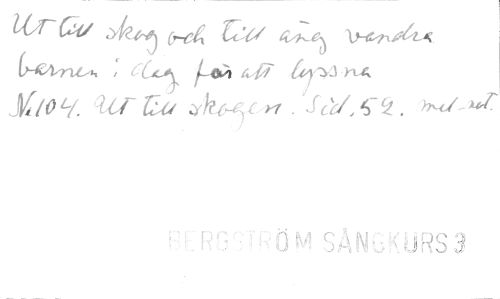 Ut till skog och till äng vandra
barnen i dag för att lyssna
No 104. Ut till skogen. Sid. 52. mel-not.
BERGSTRÖM SÅNGKURS 3